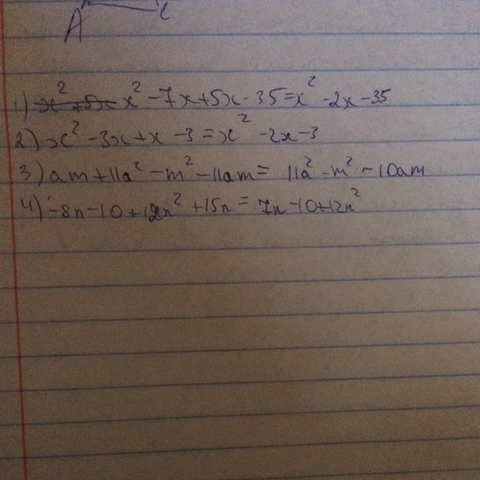 A c
1) x² + 5x x² - 7x + 5x - 35 = x² - 2x - 35
2) x² - 3x + x - 3 = x² - 2x - 3
3) am + 11a² - m² - 11am = 11a² - m² - 10am
4) -8n - 10 + 12n² + 15n = 7n - 10 + 12n²